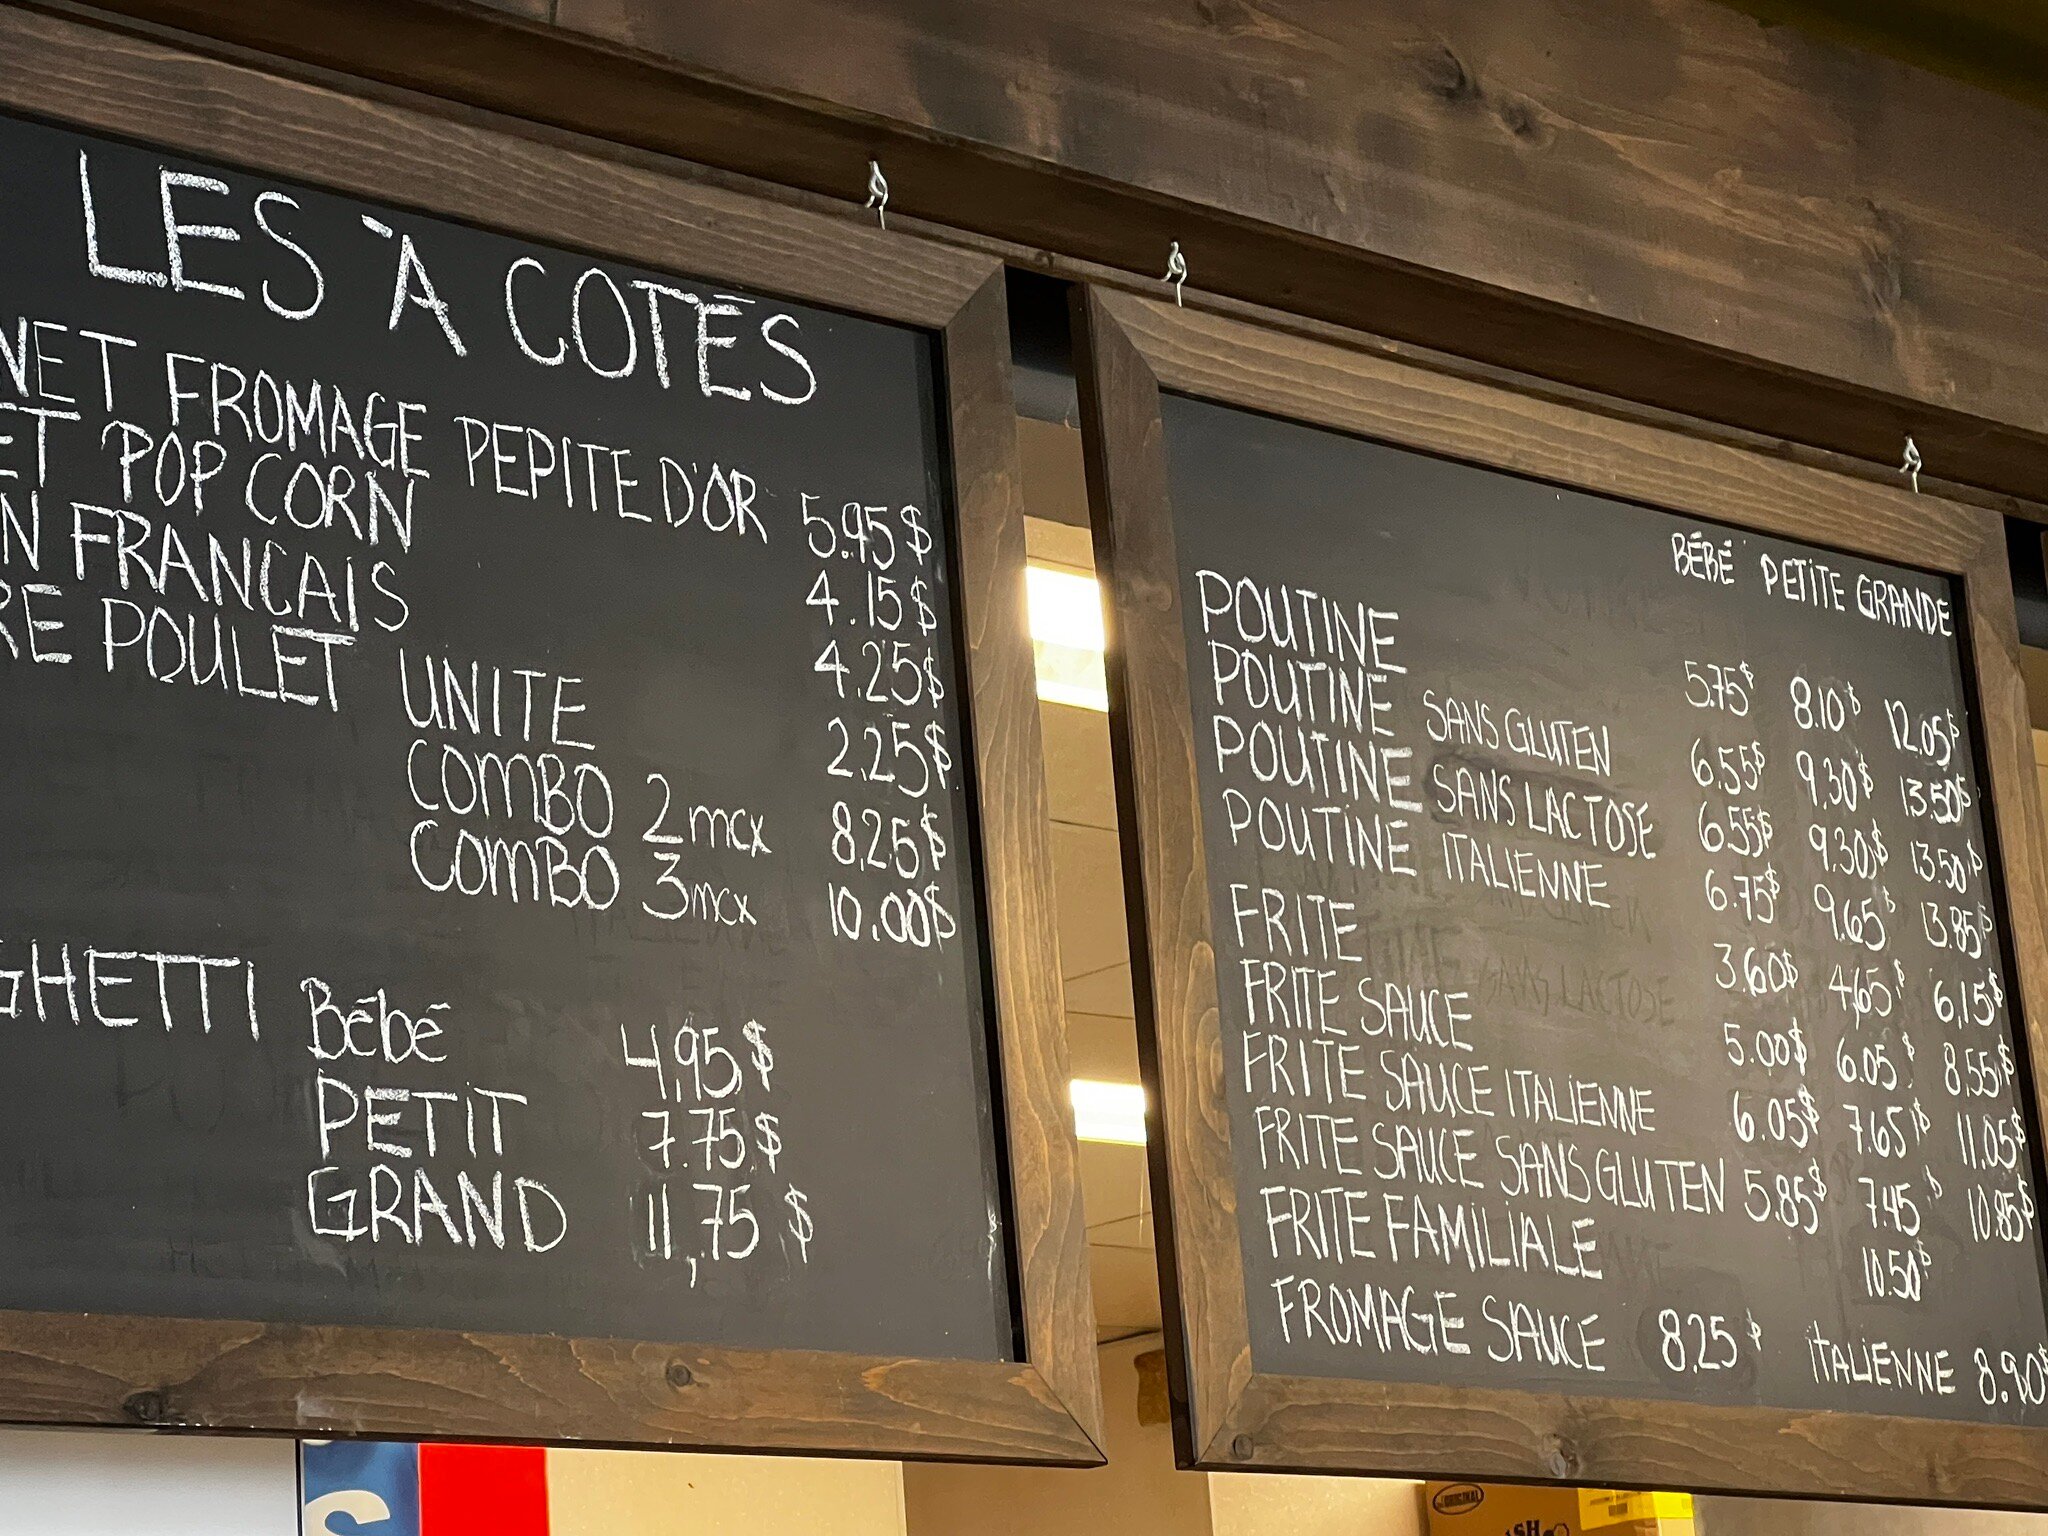 LES À COTÉS
NET FROMAGE PEPITE D'OR 5.95$
ET POP CORN 4.15$
N FRANCAIS 4.25$
RE POULET UNITE 2.25$
COMBO 2 mcx 8,25$
COMBO 3 mcx 10.00$
GHETTI Bébé 4,95$
PETIT 7.75$
GRAND 11,75$
BÉBÉ PETITE GRANDE
POUTINE 5.75$ 8.10$ 12.05$
POUTINE SANS GLUTEN 6.55$ 9.30$ 13.50$
POUTINE SANS LACTOSE 6.55$ 9.30$ 13.50$
POUTINE ITALIENNE 6.75$ 9.65$ 13.85$
FRITE 3.60$ 4,65$ 6,15$
FRITE SAUCE 5.00$ 6.05$ 8,55$
FRITE SAUCE ITALIENNE 6.05$ 7.65$ 11.05$
FRITE SAUCE SANS GLUTEN 5.85$ 7.45$ 10.85$
FRITE FAMILIALE 10.50$
FROMAGE SAUCE 8,25$ ITALIENNE 8.90$
S
ORIGINAL